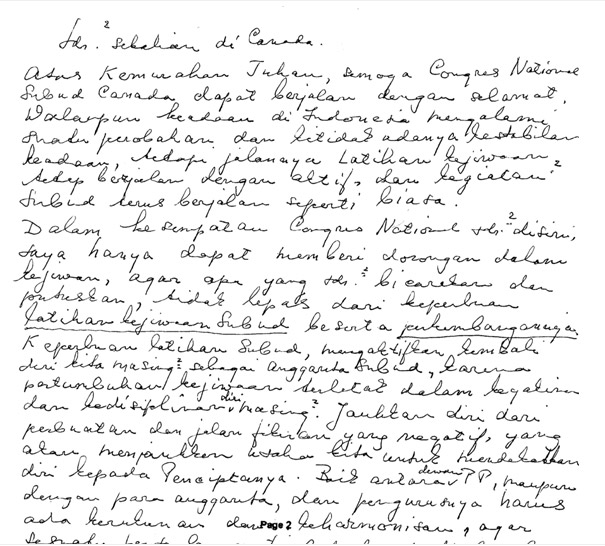 Sdr.² sekalian di Canada.
Atas Kemurahan Tuhan, semoga Congres National
Subud Canada dapat berjalan dengan selamat.
Walaupun keadaan di Indonesia mengalami
suatu perobahan dan tetidak adanya kestabilan
keadaan, tetapi jalannya Latihan kejiwaan
tetep berjalan dengan aktif, dan kegiatan²
Subud terus berjalan seperti biasa.
Dalam kesempatan Congres National sdr.² disini,
saya hanya dapat memberi dorongan dalam
kejiwan, agar apa yang sdr.² bicarakan dan
putuskan, tidak lepas dari keperluan
latihan kejiwaan Subud beserta perkembangannya
Keperluan latihan Subud, mengaktifkan kembali
diri kita masing² sebagai anggauta Subud, karena
pertumbuhan kejiwaan terletak dalam kegatinan
dan kedisiplinan diri masing². Jauhkan diri dari
perbuatan dan jalan fikiran yang negatif, yang
akan menjauhkan usaha kita untuk mendekatkan
diri kepada Penciptanya. Baik antara dewan PP, maupun
dengan para anggauta, dan pengurusnya harus
ada kerukunan dan keharmonisan, agar
Page 2